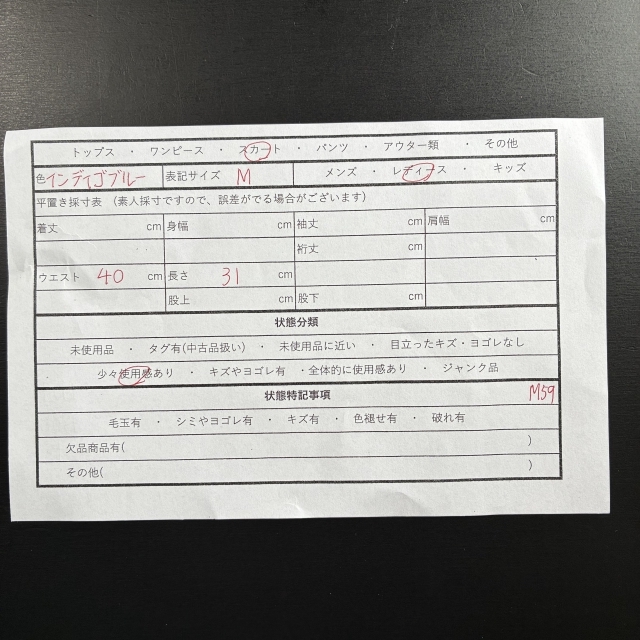 トップス ・ ワンピース ・ スカート ・ パンツ ・ アウター類 ・ その他
色 インディゴブルー 表記サイズ M メンズ ・ レディース ・ キッズ
平置き採寸表 (素人採寸ですので、誤差がでる場合がございます)
着丈 cm 身幅 cm 袖丈 cm 肩幅 cm
裄丈 cm
ウエスト 40 cm 長さ 31 cm
股上 cm 股下 cm
状態分類
未使用品 ・ タグ有(中古品扱い) ・ 未使用品に近い ・ 目立ったキズ・ヨゴレなし
少々使用感あり ・ キズやヨゴレ有 ・全体的に使用感あり ・ ジャンク品
状態特記事項 M59
毛玉有 ・ シミやヨゴレ有 ・ キズ有 ・ 色褪せ有 ・ 破れ有
欠品商品有( )
その他( )